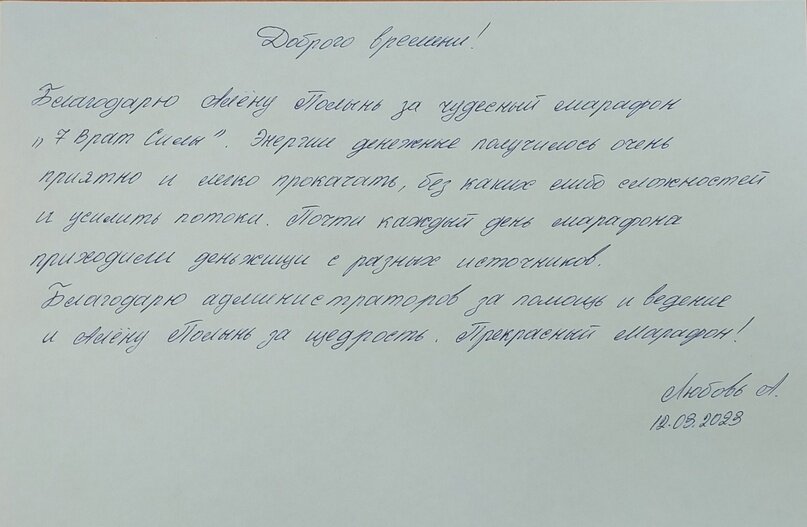 Доброго времени!
Благодарю Алёну Полынь за чудесный марафон
„7 Врат Силы". Энергии денежные получилось очень
приятно и легко прокачать, без каких либо сложностей
и усилить потоки. Почти каждый день марафона
приходили деньжищи с разных источников.
Благодарю администраторов за помощь и ведение
и Алёну Полынь за щедрость. Прекрасный Марафон!
Любовь А.
12.03.2023